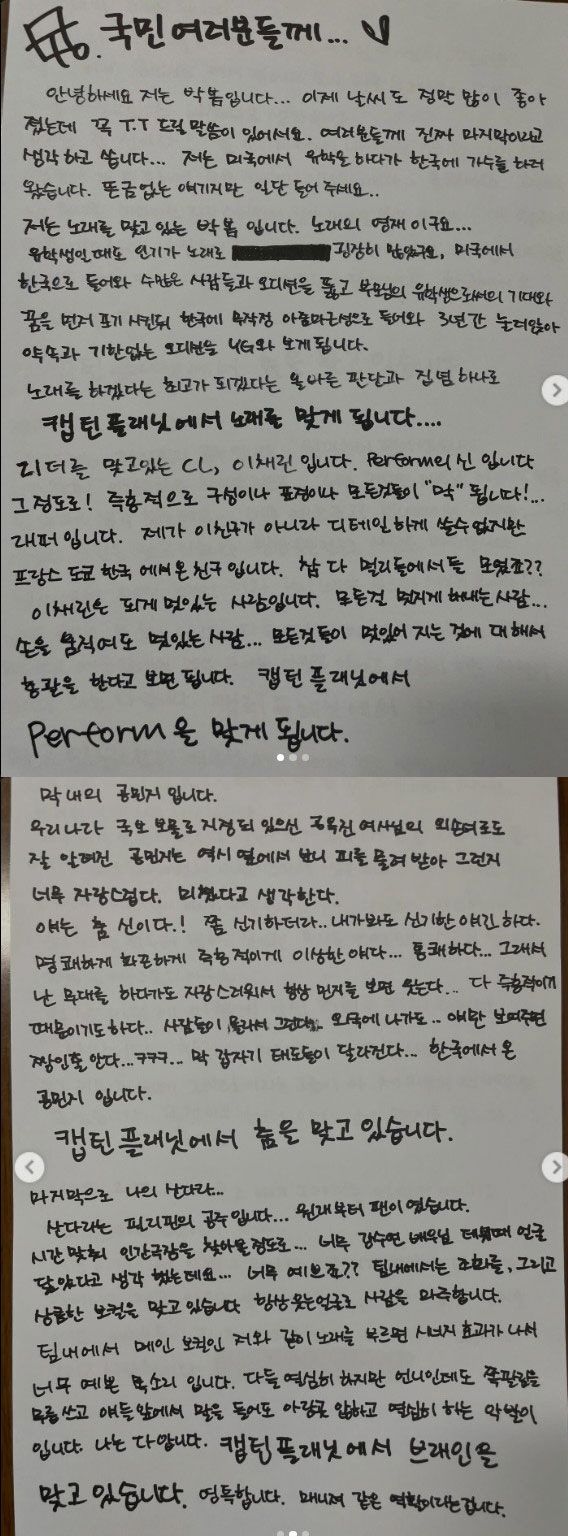 국민 여러분들께...
안녕하세요 저는 박봄입니다... 이제 날씨도 정말 많이 좋아
졌는데 꼭 T.T 드릴 말씀이 있어서요. 여러분들께 진짜 마지막이라고
생각하고 씁니다... 저는 미국에서 유학을 하다가 한국에 가수를 하러
왔습니다. 뜬금없는 얘기지만 일단 들어 주세요..
저는 노래를 맞고 있는 박봄 입니다. 노래의 영재이구요...
유학생인때도 인기가 노래로 굉장히 많았구요, 미국에서
한국으로 들어와 수많은 사람들과 오디션을 뚫고 부모님의 유학생으로써의 기대와
꿈을 먼저 포기 시킨뒤 한국에 무작정 아줌마근성으로 들어와 3년간 눌러앉아
약속과 기한없는 오디션을 YG와 보게 됩니다.
노래를 하겠다는 최고가 되겠다는 올바른 판단과 집념 하나로
캡틴 플래닛에서 노래를 맞게 됩니다....
리더를 맞고있는 CL, 이채린 입니다. Perform의 신 입니다
그정도로! 즉흥적으로 구성이나 표정이나 모든것들이 "막" 됩니다!...
래퍼입니다. 제가 이친구가 아니라 디테일 하게 쓸수 없지만
프랑스 도쿄 한국 에서 온 친구 입니다. 참 다 멀리들에서들 모였죠??
이채린은 되게 멋있는 사람입니다. 모든걸 멋지게 해내는 사람...
손을 움직여도 멋있는 사람... 모든것들이 멋있어 지는 것에 대해서
총괄을 한다고 보면 됩니다. 캡틴 플래닛에서
Perform을 맞게 됩니다.
막내의 공민지 입니다.
우리나라 국보 보물로 지정되 있으신 공옥진 여사님의 외손녀로도
잘 알려진 공민지는 역시 옆에서 보니 피를 물려 받아 그런지
너무 자랑스럽다. 미쳤다고 생각한다.
얘는 춤 신이다.! 쫌 신기하더라.. 내가봐도 신기한 얘긴 하다.
명쾌하게 화끈하게 즉흥적이게 이상한 얘다... 통쾌하다... 그래서
난 무대를 하다가도 자랑스러워서 항상 민지를 보면 웃는다... 다 즉흥적이기
때문이기도하다.. 사람들이 몰라서 그런다.. 외국에 나가도.. 얘만 보여주면
짱인줄 안다...ㅋㅋㅋ... 막 갑자기 태도들이 달라진다... 한국에서 온
공민지 입니다.
캡틴 플래닛에서 춤을 맞고 있습니다.
마지막으로 나의 산다라...
산다라는 필리핀의 공주입니다... 원래부터 팬이였습니다.
시간 맞춰 인간극장을 찾아볼 정도로... 너무 강수연 배우님 데뷔때 얼굴
닮았다고 생각 했는데요... 너무 예쁘죠?? 팀내에서는 조화를, 그리고
상큼한 보컬을 맞고 있습니다 항상 웃는얼굴로 사람을 마주합니다.
팀내에서 메인 보컬인 저와 같이 노래를 부르면 시너지 효과가 나서
너무 예쁜 목소리 입니다. 다들 열심히 하지만 언니인데도 쪽팔림을
무릅쓰고 얘들앞에서 말을 들어도 아랑곳 않하고 열심히 하는 악발이
입니다. 나는 다 압니다. 캡틴플래닛에서 브레인을
맞고 있습니다. 영특합니다. 매니져 같은 역활이라는겁니다.